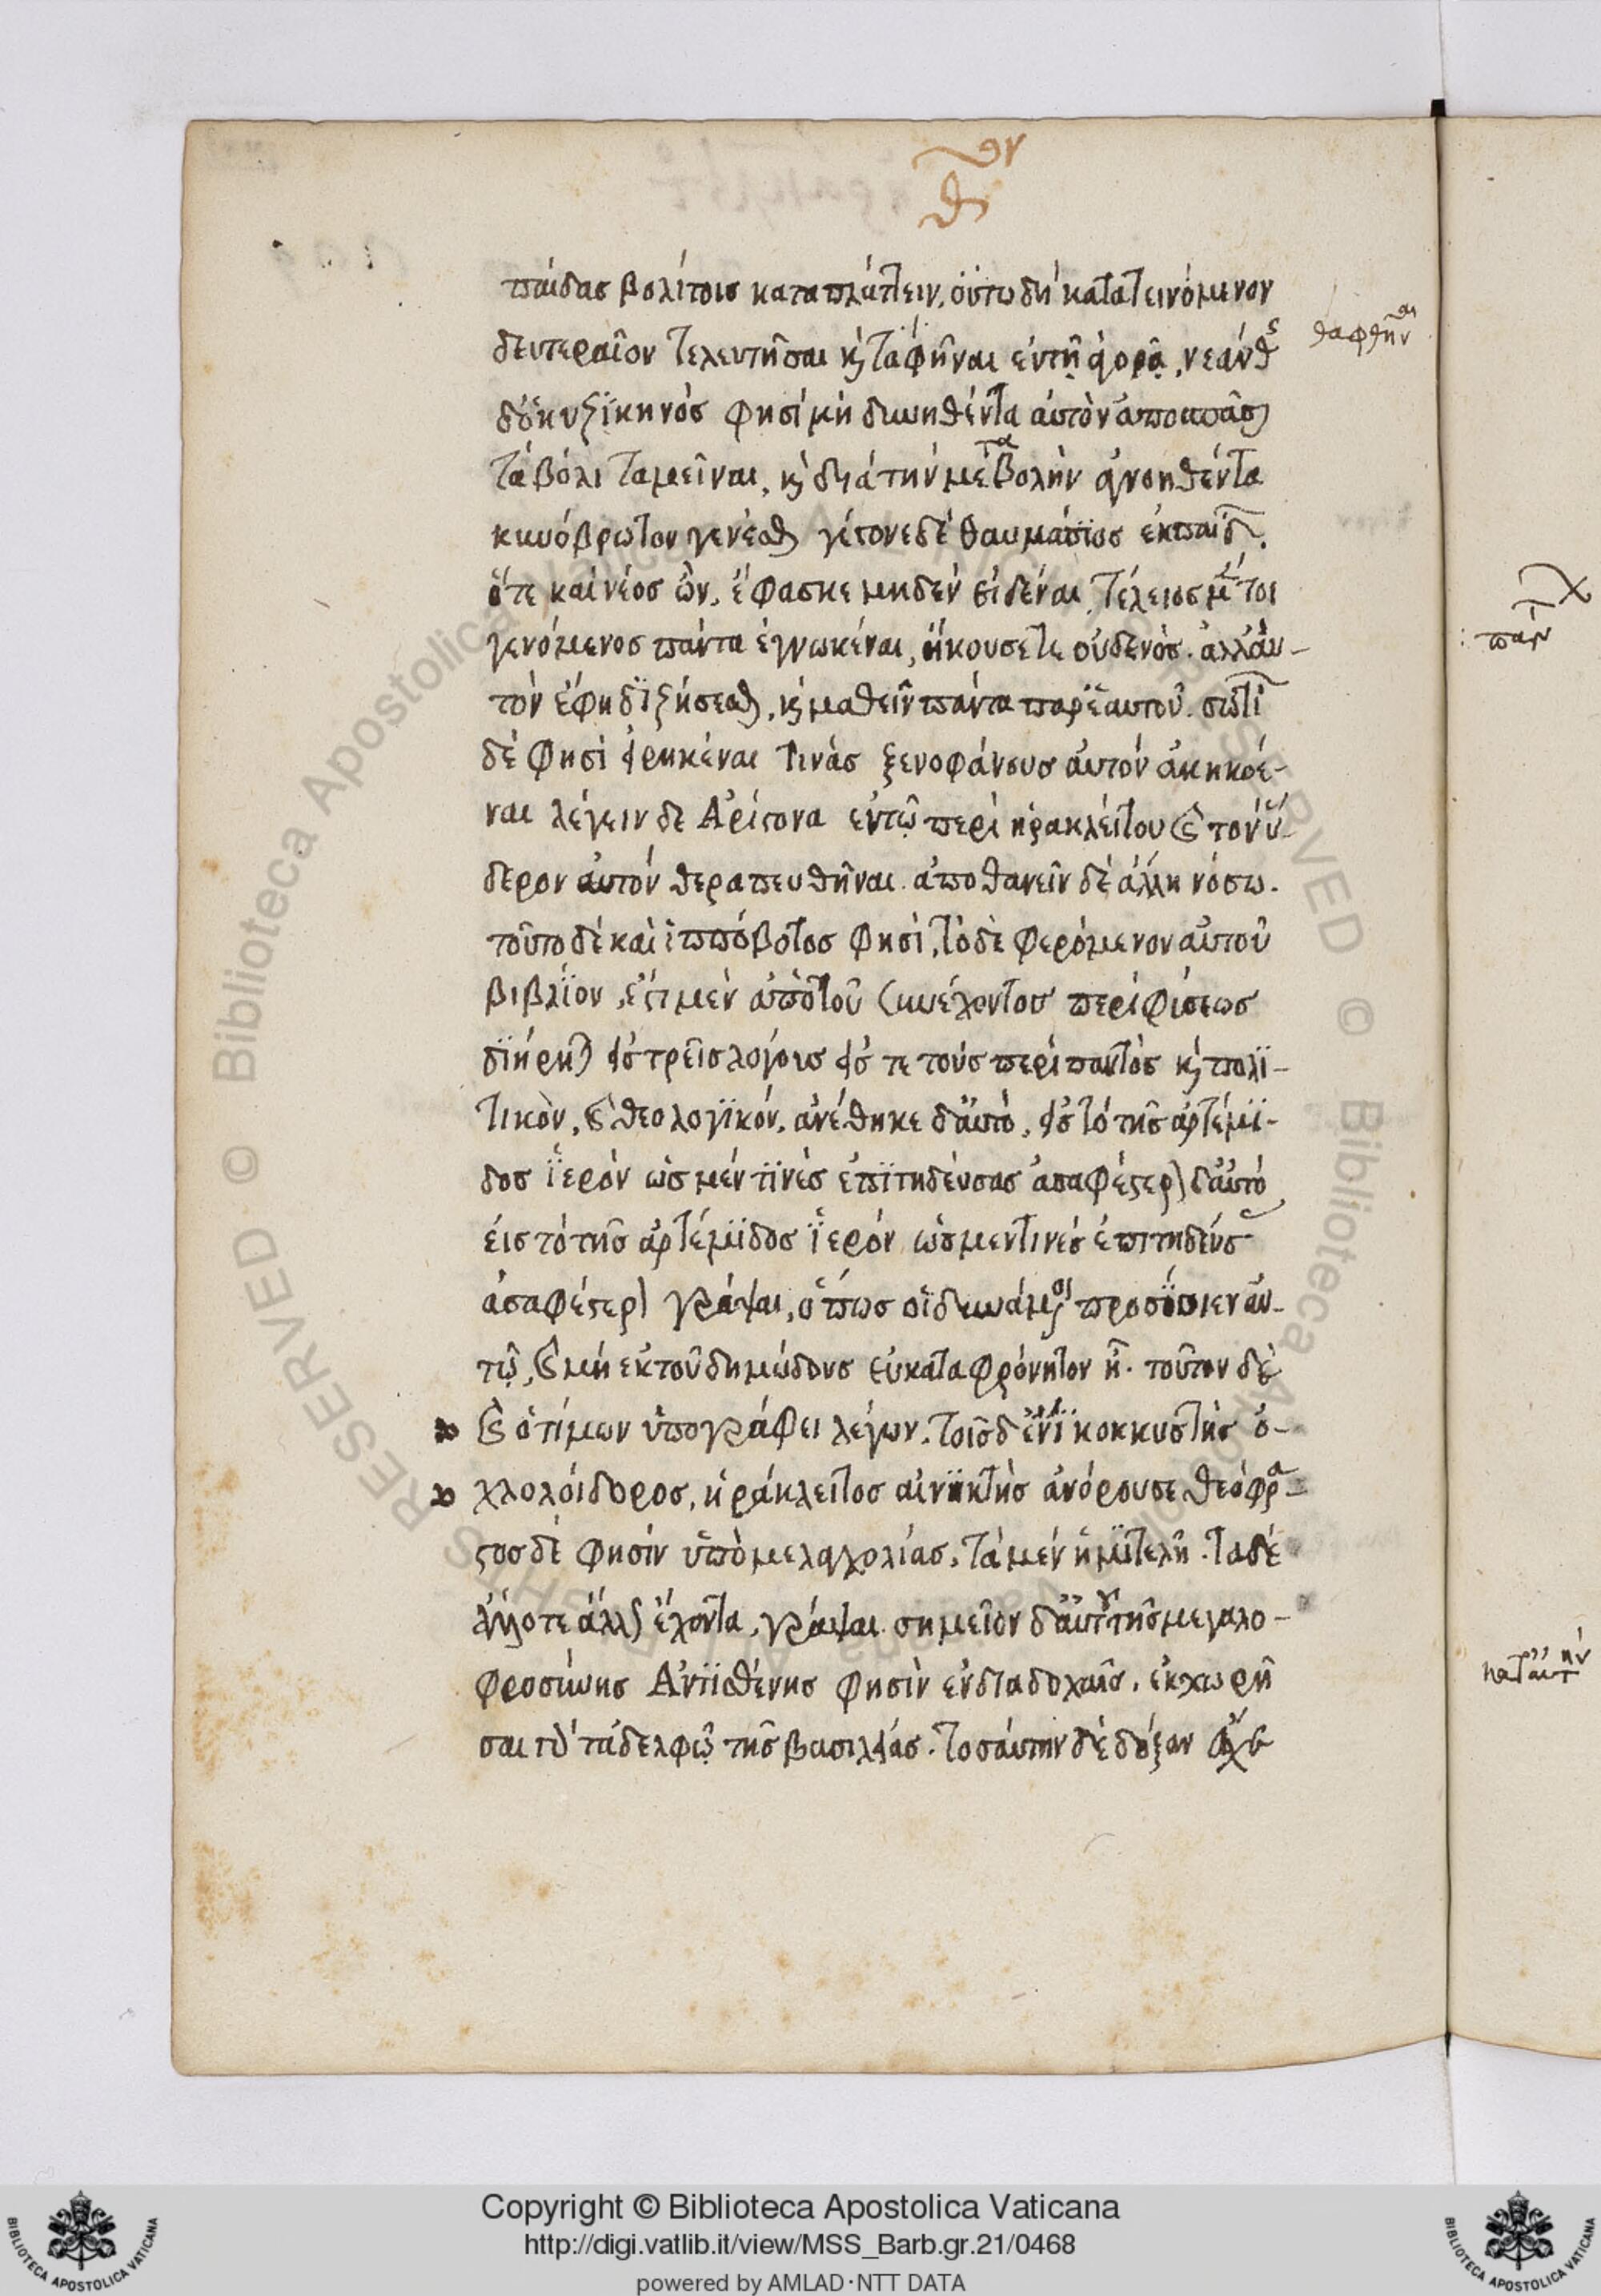 θον
παίδας βολίτοις καταπλάττειν. οὕτω δὴ κατατεινόμενον
δευτεραῖον τελευτῆσαι κὶ ταφῆναι ἐν τῇ ἀγορᾷ. νεάνθης
δὲ ὁ κυζϊκηνός φησὶ μὴ δυνηθέντα αὐτὸν ἀποσπᾶσαι
τὰ βόλιτα μεῖναι, κὶ διὰ τὴν μεταβολὴν ἀγνοηθέντα
κυνόβρωτον γενέσθαι γέγονε δὲ θαυμάσϊος ἐκ παίδων.
ὅτε καὶ νέος ὢν, ἔφασκε μηδὲν εἰδέναι, τέλειος μέντοι
γενόμενος πάντα ἐγνωκέναι, ἤκουσέ τε οὐδενὸς. ἀλλ' αὑ-
τὸν ἔφη δϊζήσεσθαι, κὶ μαθεῖν πάντα παρ' ἑαυτοῦ. σωτίων
δέ φησὶ εἰρηκέναι τινὰς ξενοφάνους αὐτὸν ἀκηκοέ-
ναι λέγειν δὲ Ἀρίστονα ἐν τῷ περὶ ἡρακλείτου καὶ τὸν ὕ-
δερον αὐτὸν θεραπευθῆναι. ἀποθανεῖν δὲ ἄλλη νόσω.
τοῦτο δὲ καὶ ἱππόβοτος φησὶ, τὸ δὲ φερόμενον αὐτοῦ
βιβλΐον, ἔστι μὲν ἀπὸ τοῦ συνέχοντος περὶ φύσεως
δϊήρηται εἰς τρεῖς λόγους εἴς τε τοὺς περὶ παντὸς κὶ πολϊ-
τικὸν, καὶ θεολογϊκόν. ἀνέθηκε δ' αὐτὸ, εἰς τὸ τῆς ἀρτέμϊ-
δος ϊερὸν ὡς μέν τϊνὲς ἐπϊτηδεύσας ἀσαφέστερον δ' αὐτό
εἰς τὸ τῆς ἀρτέμϊδος ϊερόν ὡς μέν τινές ἐπιτηδεύσας
ἀσαφέστερον γράψαι, ὅπως οἱ δυνάμενοι προσΐοιεν αὐ-
τῷ, καὶ μὴ ἐκ τοῦ δημώδους εὐκαταφρόνητον ᾖ. τοῦτον δὲ
καὶ ὁ τίμων ὑπογράφει λέγων. τοῖς δ' ἔνϊ κοκκυστὴς ὀ-
χλολοίδορος, ἡράκλειτος αἰνϊκτὴς ἀνόρουσε θεόφρα-
στος δέ φησίν ὑπὸ μελαγχολίας. τὰ μὲν ἡμϊτελῆ. τὰ δὲ
ἄλλοτε ἄλλως ἔχοντα, γράψαι. σημεῖον δ' αὐτοῦ τῆς μεγαλο-
φροσύνης Ἀντϊσθένης φησὶν ἐν διαδοχαῖς. ἐκχωρῆ
σαι τὸ τἀδελφῷ τῆς βασιλείας. τοσαύτην δὲ δόξαν ἔσχε
θαφθῆναι